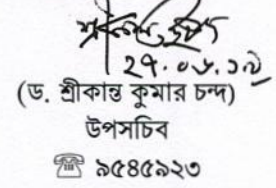 ২৭.০৬.১৭
(ড. শ্রীকান্ত কুমার চন্দ)
উপসচিব
☎ ৯৫৪৫৯২৩